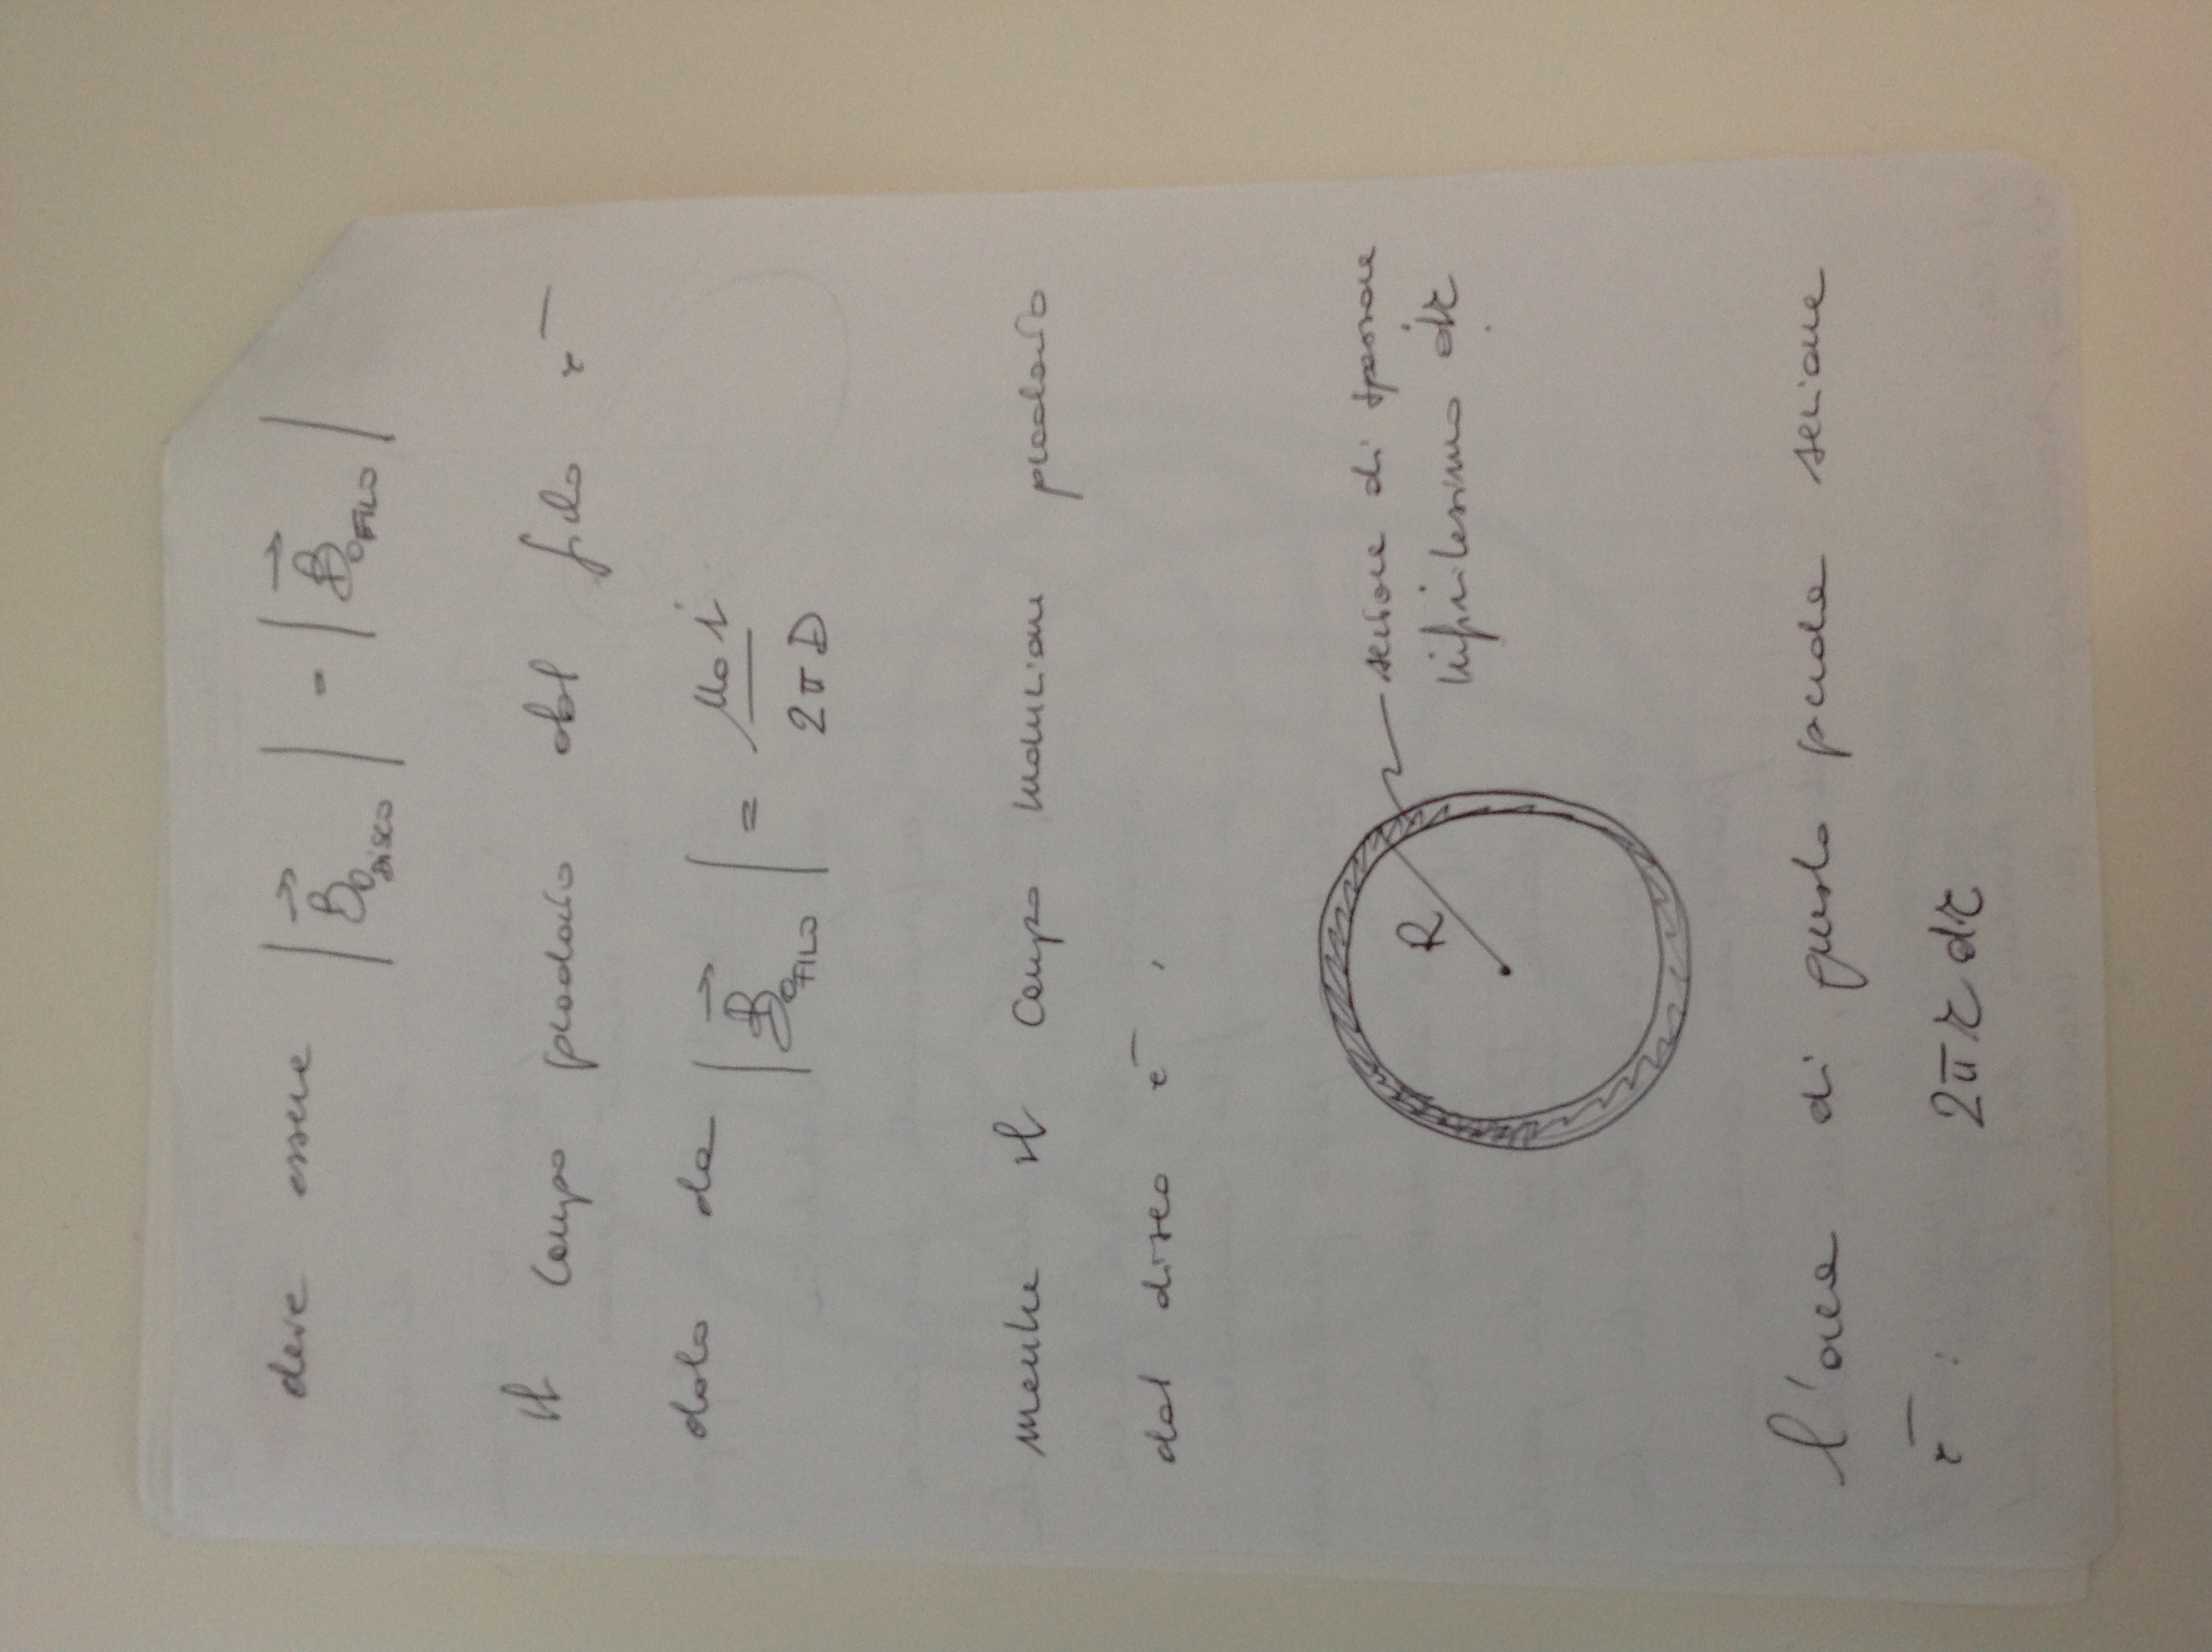 deve essere |B⃗₀ DISCO| = |B⃗₀ FILO|
Il campo prodotto dal filo è
dato da |B⃗₀ FILO| = μ₀ i / 2π D
mentre il campo induzione prodotto
dal disco è ,
R
sezione di spessore
infinitesimo dr
l'area di questa sezione
è : 2π r dr